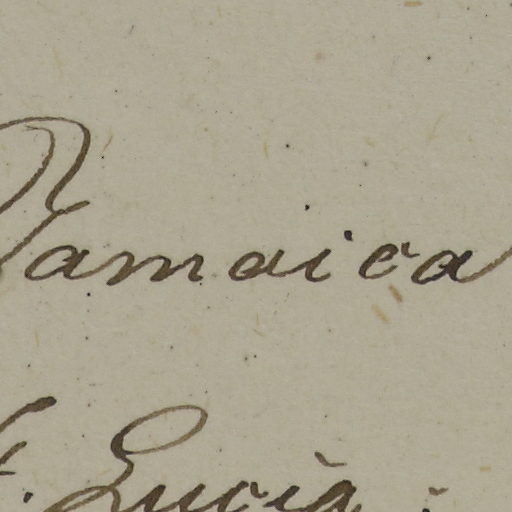 Jamaica
t. Lucia